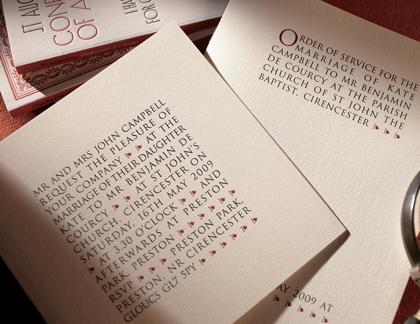 ORDER OF SERVICE FOR THE
MARRIAGE OF KATE
CAMPBELL TO MR BENJAMIN
DE COURCY AT THE PARISH
CHURCH OF ST JOHN THE
BAPTIST, CIRENCESTER
MR AND MRS JOHN CAMPBELL
REQUEST THE PLEASURE OF
YOUR COMPANY AT THE
MARRIAGE OF THEIR DAUGHTER
KATE TO MR BENJAMIN DE
COURCY AT ST JOHN'S
CHURCH, CIRENCESTER ON
SATURDAY, 16TH MAY 2009
AT 3.30 O'CLOCK AND
AFTERWARDS AT PRESTON
PARK, PRESTON
RSVP PRESTON PARK,
PRESTON, NR CIRENCESTER
GLOUCS GL7 5PY
AY 2009 AT
CON
OF A
FOR